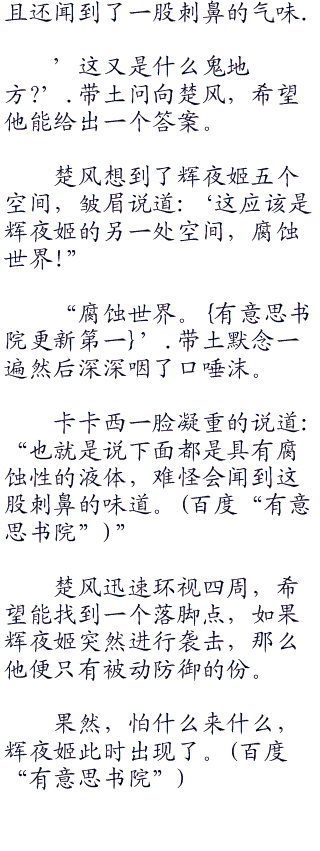 且还闻到了一股刺鼻的气味.
’这又是什么鬼地
方?’.带土问向楚风，希望
他能给出一个答案。
楚风想到了辉夜姬五个
空间，皱眉说道:‘这应该是
辉夜姬的另一处空间，腐蚀
世界!”
“腐蚀世界。{有意思书
院更新第一}’.带土默念一
遍然后深深咽了口唾沫。
卡卡西一脸凝重的说道:
“也就是说下面都是具有腐
蚀性的液体，难怪会闻到这
股刺鼻的味道。(百度“有意
思书院”)”
楚风迅速环视四周，希
望能找到一个落脚点，如果
辉夜姬突然进行袭击，那么
他便只有被动防御的份。
果然，怕什么来什么，
辉夜姬此时出现了。(百度
“有意思书院”)